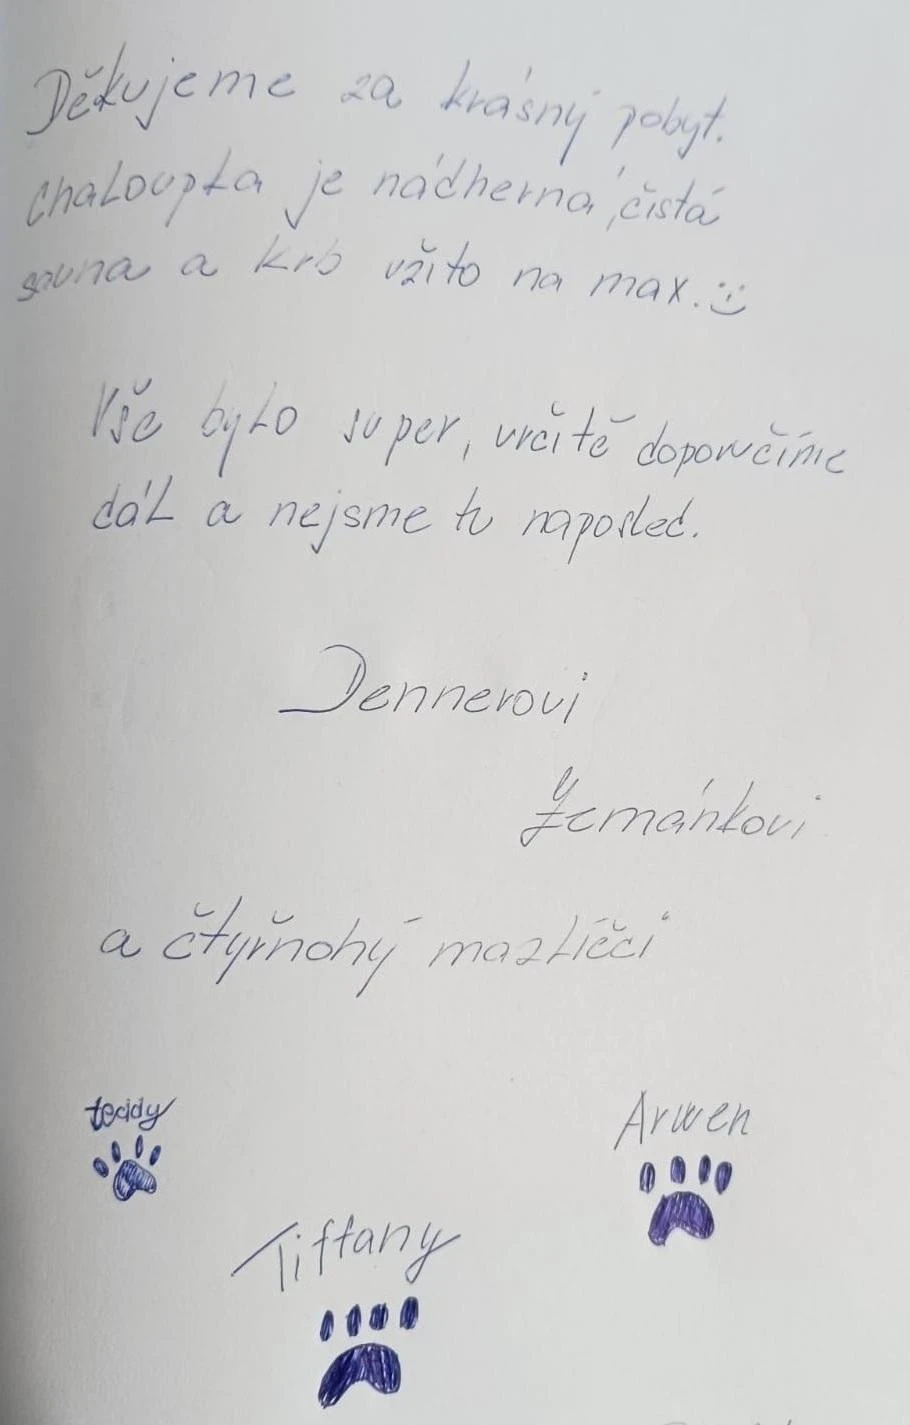 Děkujeme za krásný pobyt.
Chaloupka je nádherná, čistá
sauna a krb užito na max. :)
Vše bylo super, určitě doporučíme
dál a nejsme tu naposled.
Dennerovi
Zemánkovi
a čtyřnohý mazlíčci
teddy
Arwen
Tiffany